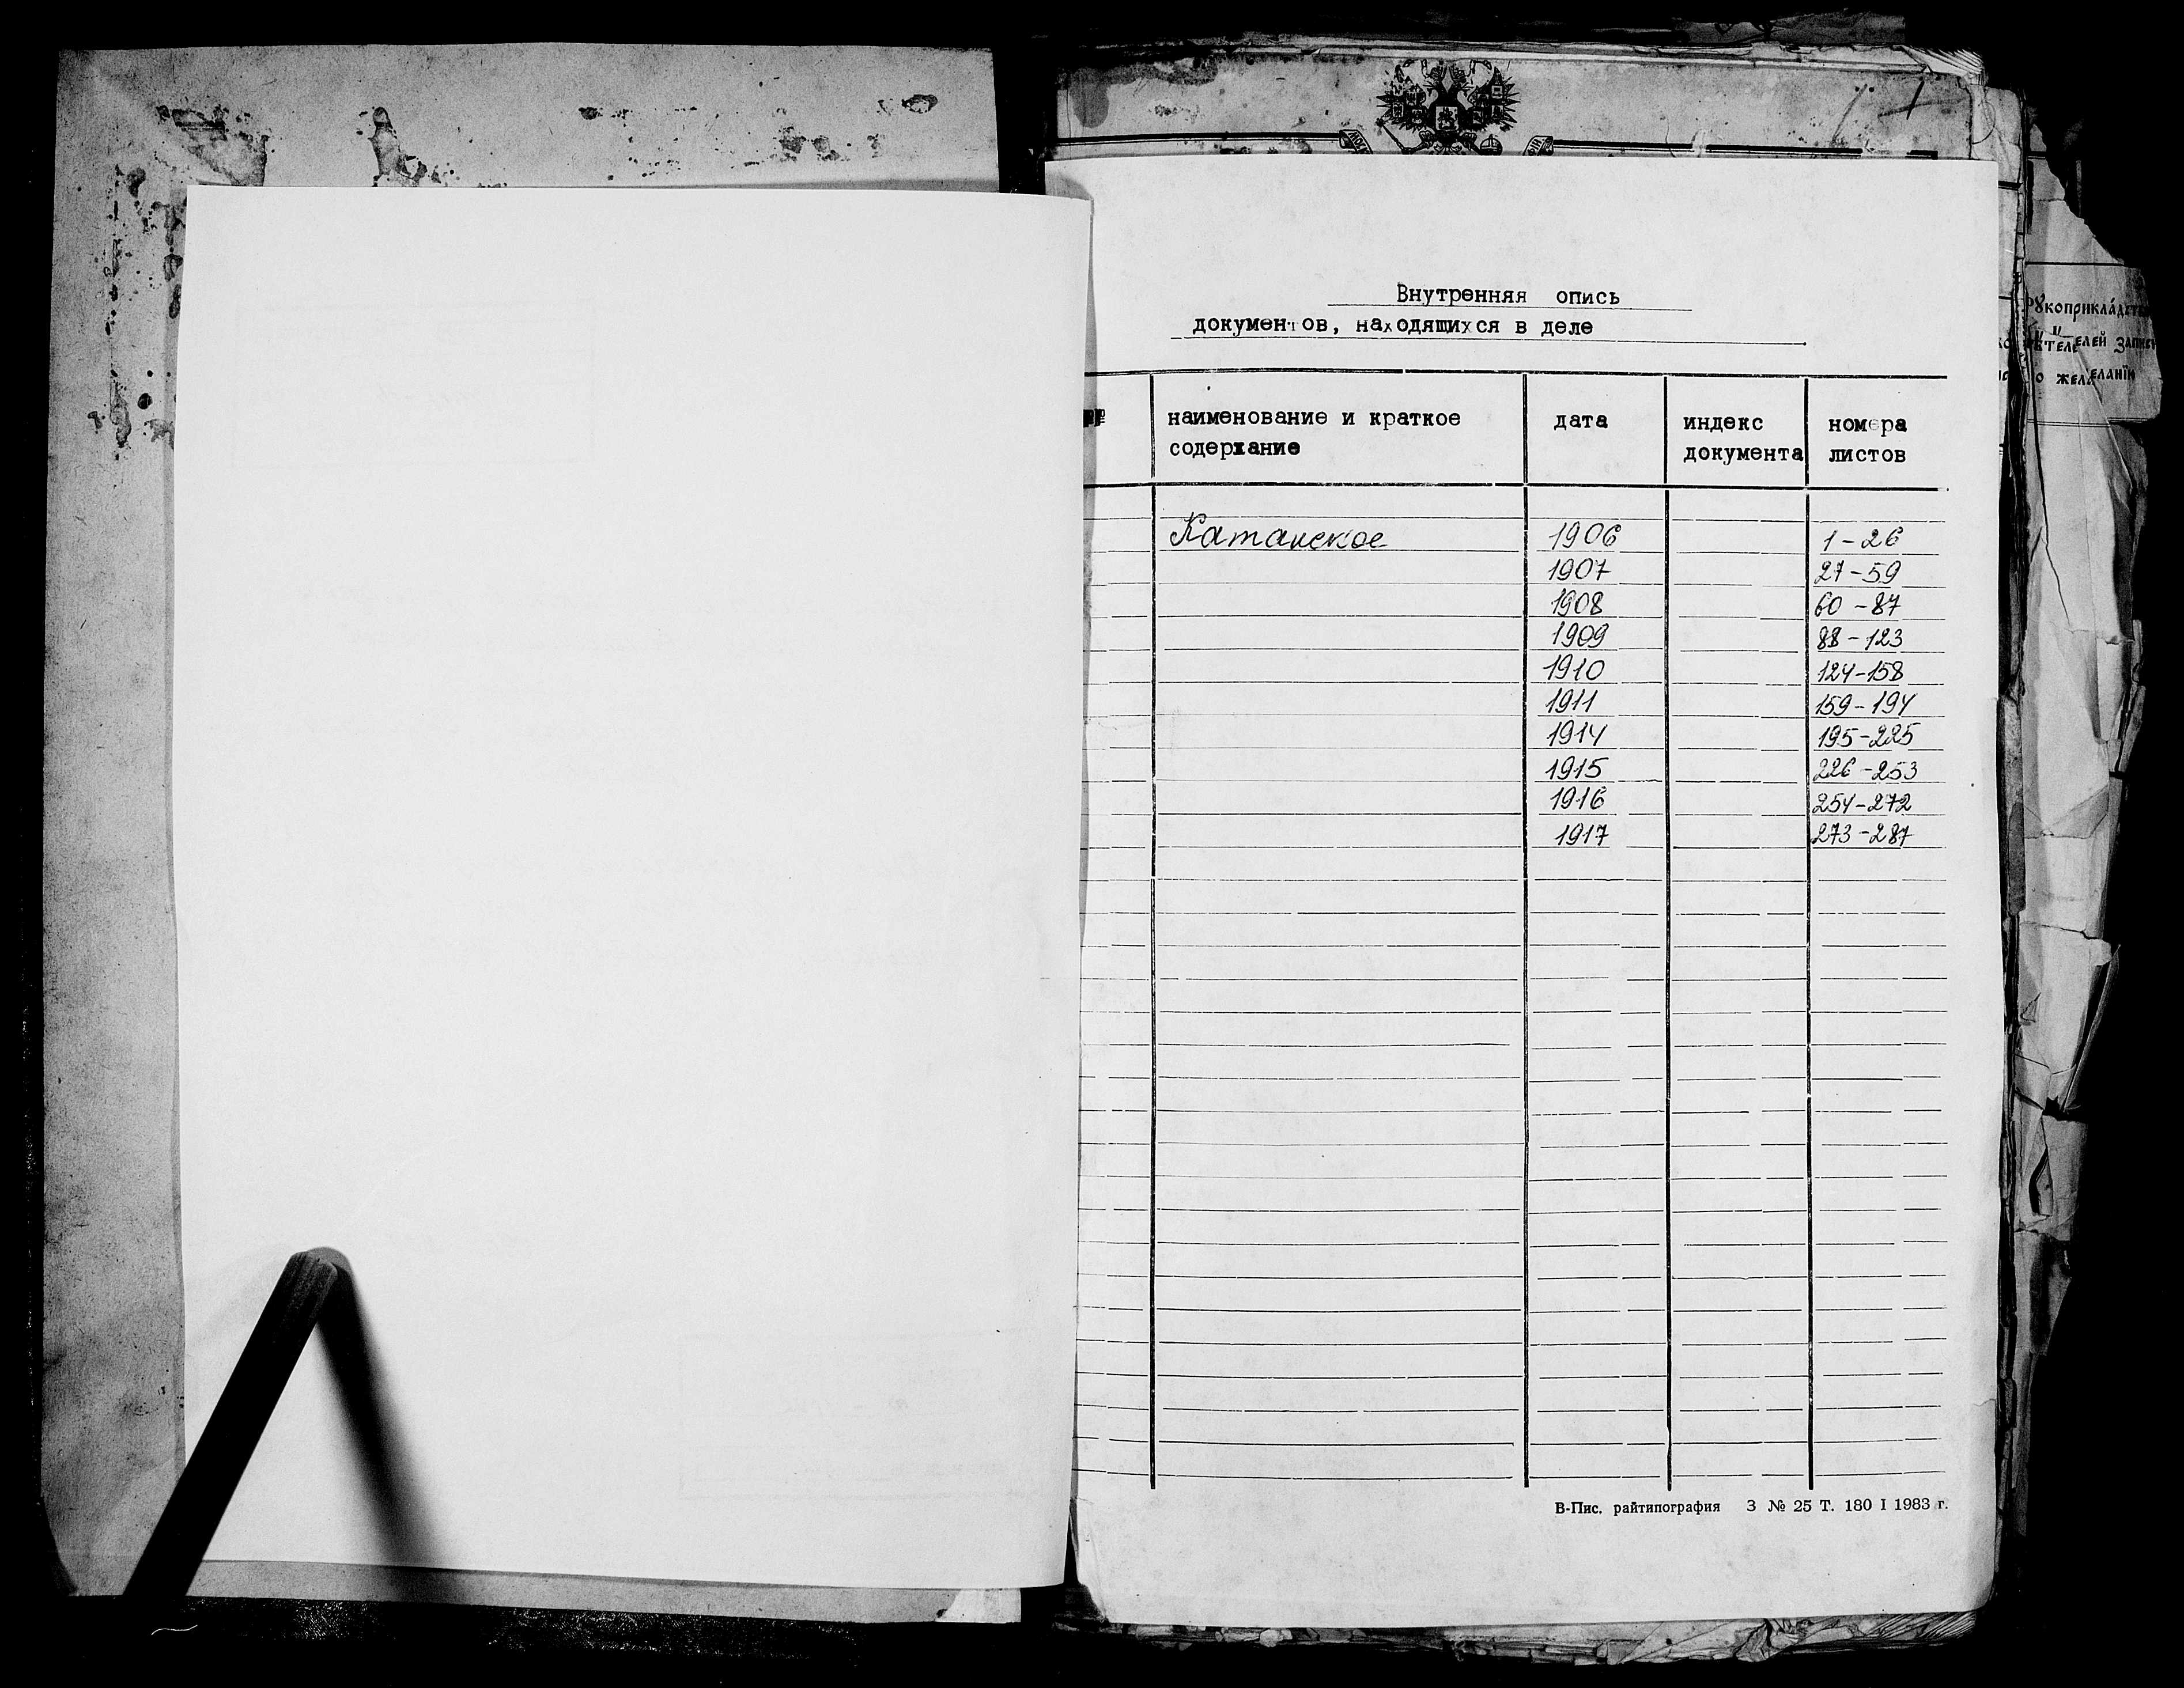 Внутренняя опись
документов, находящихся в деле
№ наименование и краткое содержание дата индекс документа номера листов
Катанское 1906 1-26
1907 27-59
1908 60-87
1909 88-123
1910 124-158
1911 159-194
1914 195-225
1915 226-253
1916 254-272
1917 273-287
В-Пис. райтипография З № 25 Т. 180 I 1983 г.